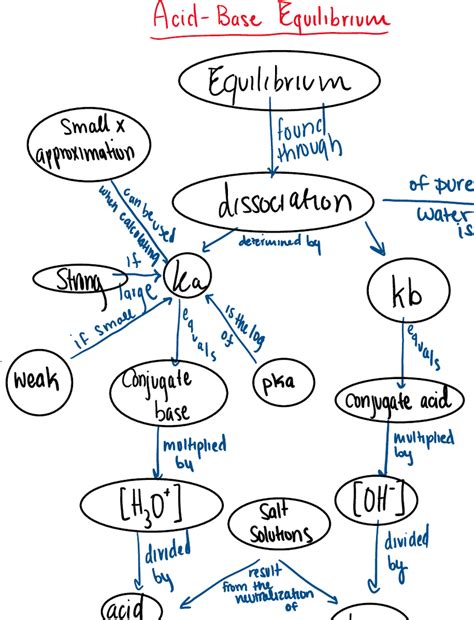 Acid-Base Equilibrium
Equilibrium
found
through
small x
approximation
dissociation
of pure
water
is
can be used
when calculating
determined by
Strong
if
large
ka
kb
if small
equals
is the log
of
equals
weak
Conjugate
base
pka
Conjugate acid
multiplied
by
multiplied
by
[H₃O⁺]
Salt
Solutions
[OH⁻]
divided
by
result
from the
neutralization
of
divided
by
acid